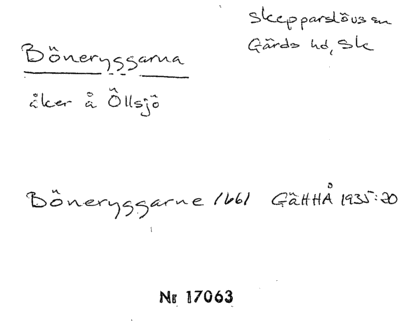 Skepparslövs sn
Gärds hd, Sk
Böneryggarna
åker å Öllsjö
Böneryggarne 1661 GäHHÅ 1935:20
Nr 17063